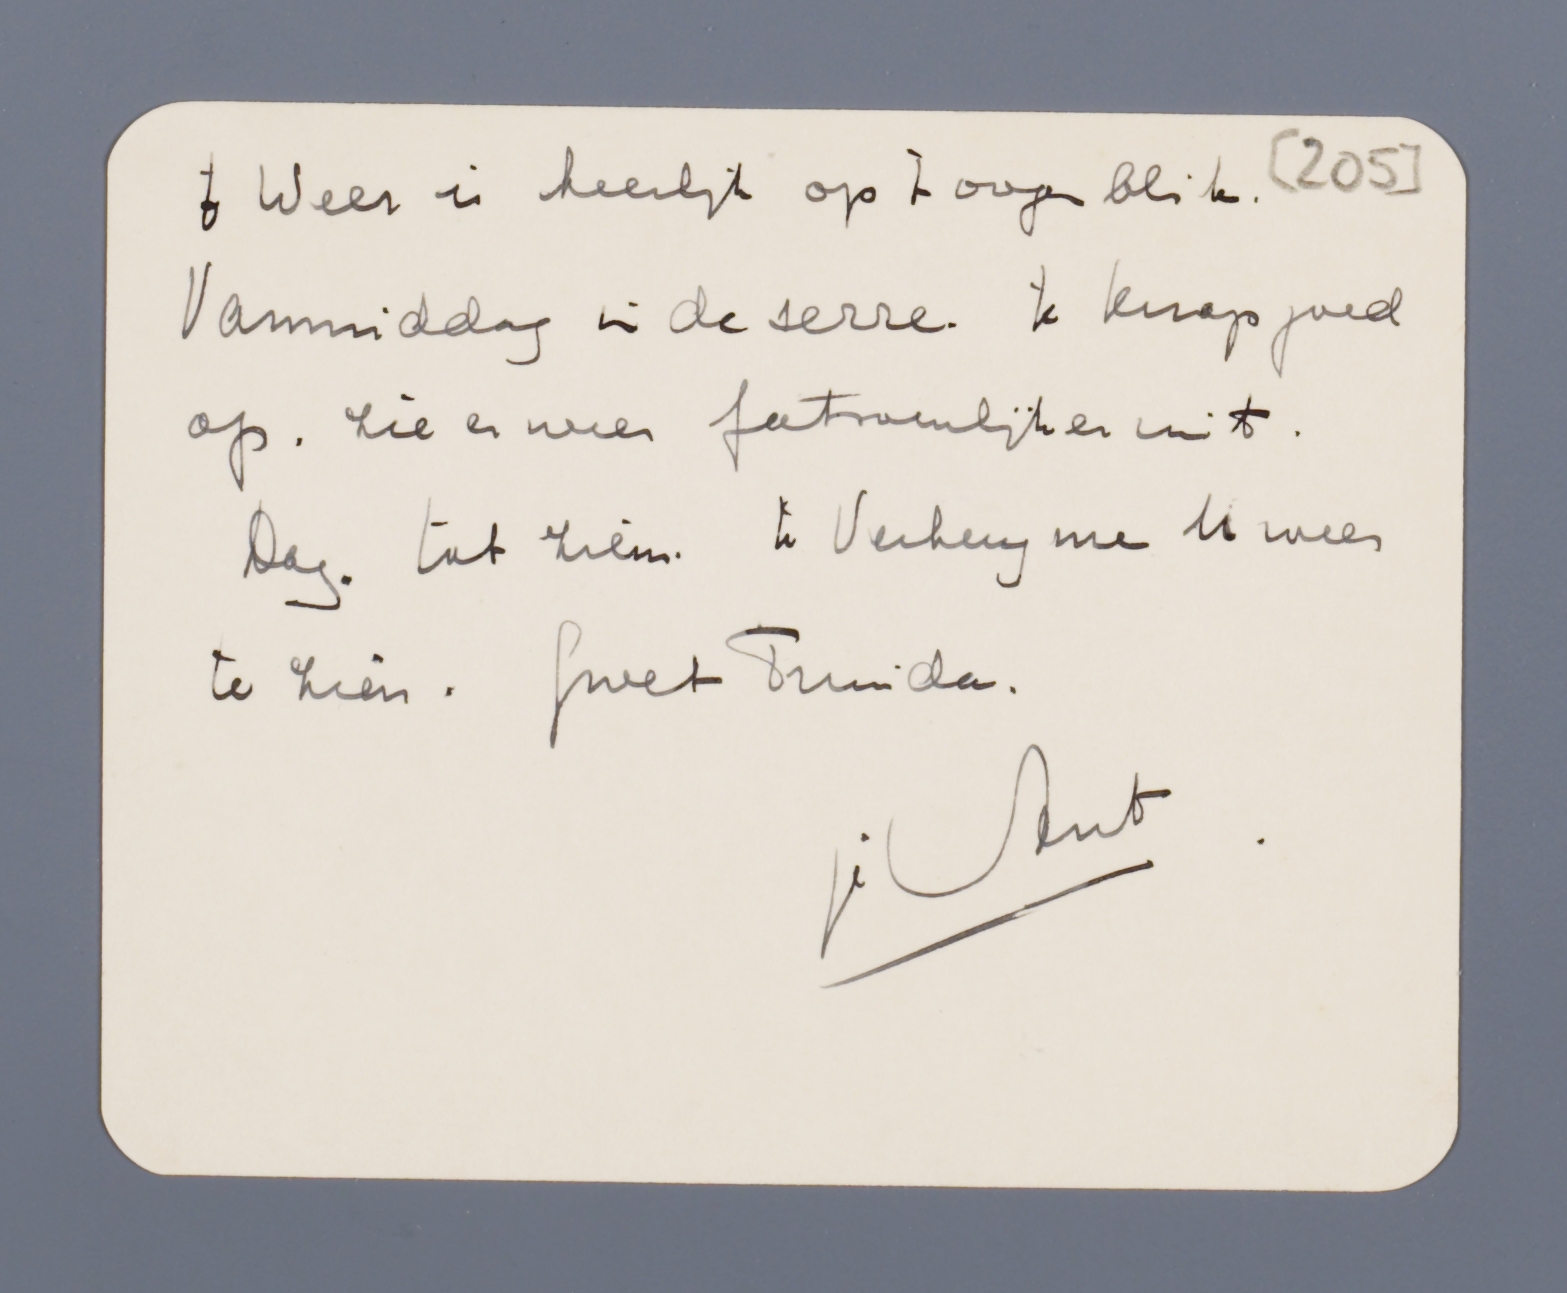 [205]
't Weer is heerlijk op 't oogenblik.
Vanmiddag in de serre. Ik knap goed
op. Zie er weer fatsoenlijker uit.
Dag. tot ziens. Ik Verheug me U weer
te zien. Groet Truida.
je Ant